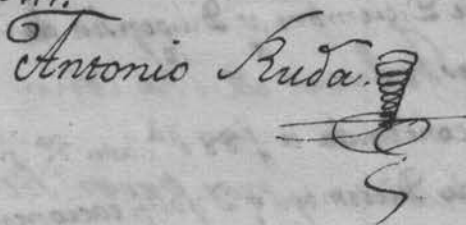 Antonio Ruda.